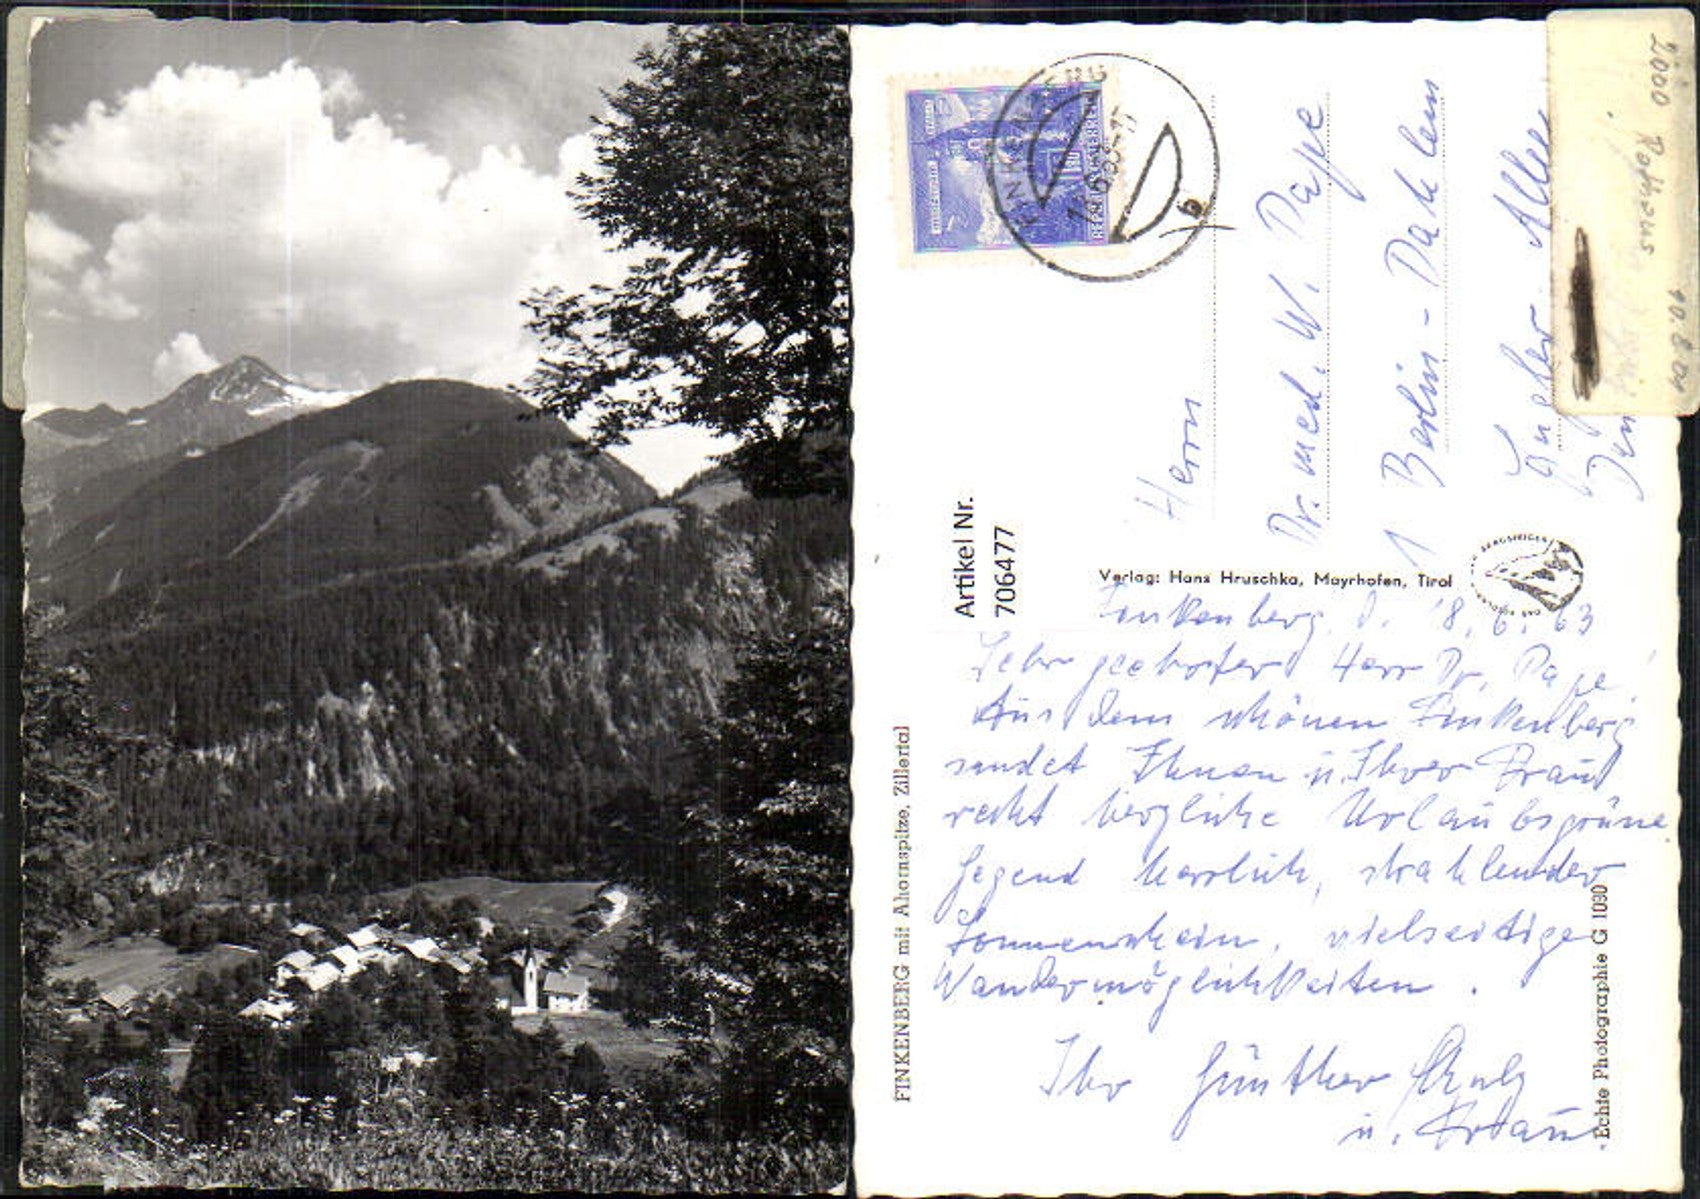 FINKENBERG
REPUBLIK ÖSTERREICH
b
Herrn
Dr. med. W. Pape
1 Berlin-Dahlem
Allee
2000
10.8.01
Artikel Nr.
706477
Verlag: Hans Hruschka, Mayrhofen, Tirol
FINKENBERG mit Ahornspitze, Zillertal
Echte Photographie G 1090
Finkenberg, d. 18.6.63
Sehr geehrter Herr Dr. Pape!
Aus dem schönen Finkenberg
sendet Ihnen u. Ihrer Frau
recht herzliche Urlaubsgrüne.
Gegend herrlich, strahlender
Sonnenschein, vielseitige
Wandermöglichkeiten.
Ihr Günther
u. Frau